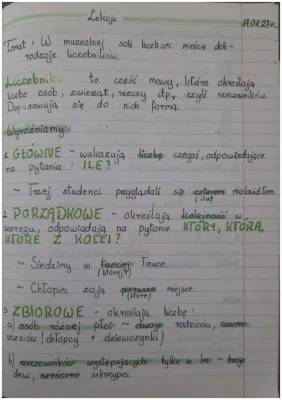 Lekcja 17.01.23r.
Temat: W muzealnej sali liczb
rodzaje liczebników.
Liczebniki to część mowy, które określają
liczbę osób, zwierząt, rzeczy itp., czyli rzeczowników.
Dopasowują się do nich formą.
Wyróżniamy
1. GŁÓWNE - wskazują liczbę czegoś, odpowiadające
na pytania: ILE?
~ Trzej studenci przyglądali się czterem malowidłom.
(ilu)
2. PORZĄDKOWE - określają kolejność w
szeregu, odpowiadają na pytanie KTÓRY, KTÓRA,
KTÓRE Z KOLEI?
~ Siedzimy w trzeciej ławce.
(której?)
~ Chłopiec zajął pierwsze miejsce.
(które)
3. ZBIOROWE - określają liczbę:
a) osób różnej płci ~ dwoje rodziców,
uczniów (chłopcy + dziewczynki)
b) rzeczowników występujących tylko w lm ~ troje
drzwi, sześcioro skrzypiec